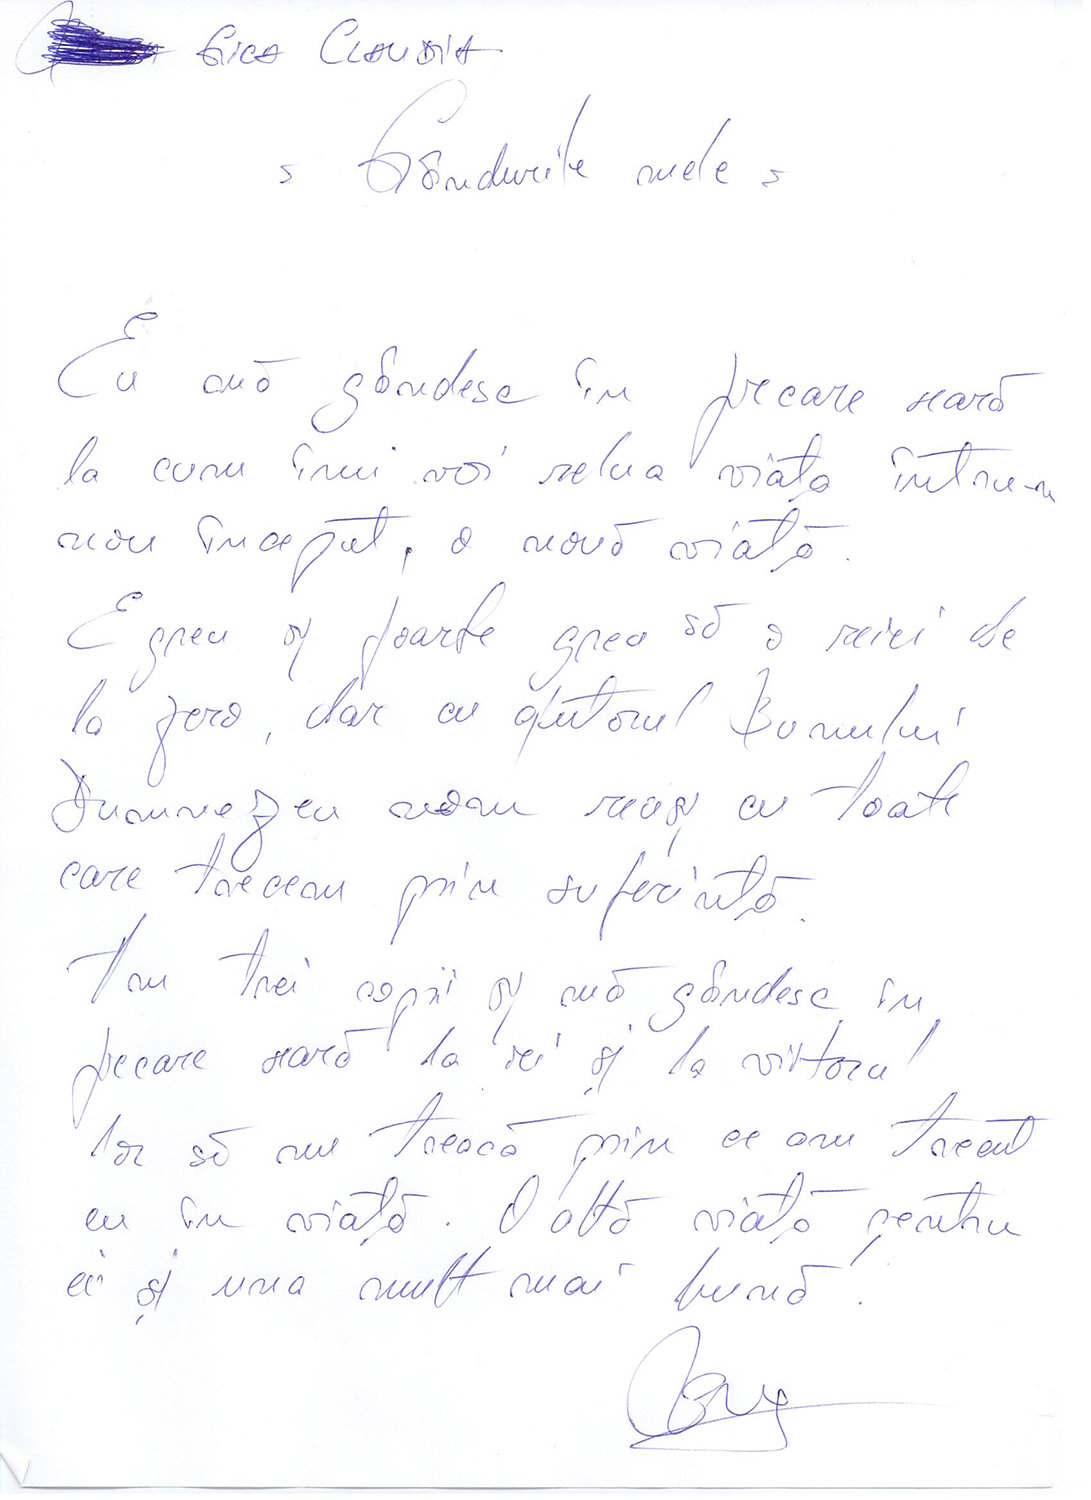 Gica Claudia
" Gândurile mele "
Eu mă gândesc în fiecare seară
la cum îmi voi relua viața într-un
nou început, o nouă viață.
E greu și foarte greu să o reiei de
la zero, dar cu ajutorul Bunului
Dumnezeu vom reuși cu toate
care trecem prin suferință.
Am trei copii și mă gândesc în
fiecare seară la ei și la viitorul
lor să nu treacă prin ce am trecut
eu în viață. O altă viață pentru
ei și una mult mai bună!